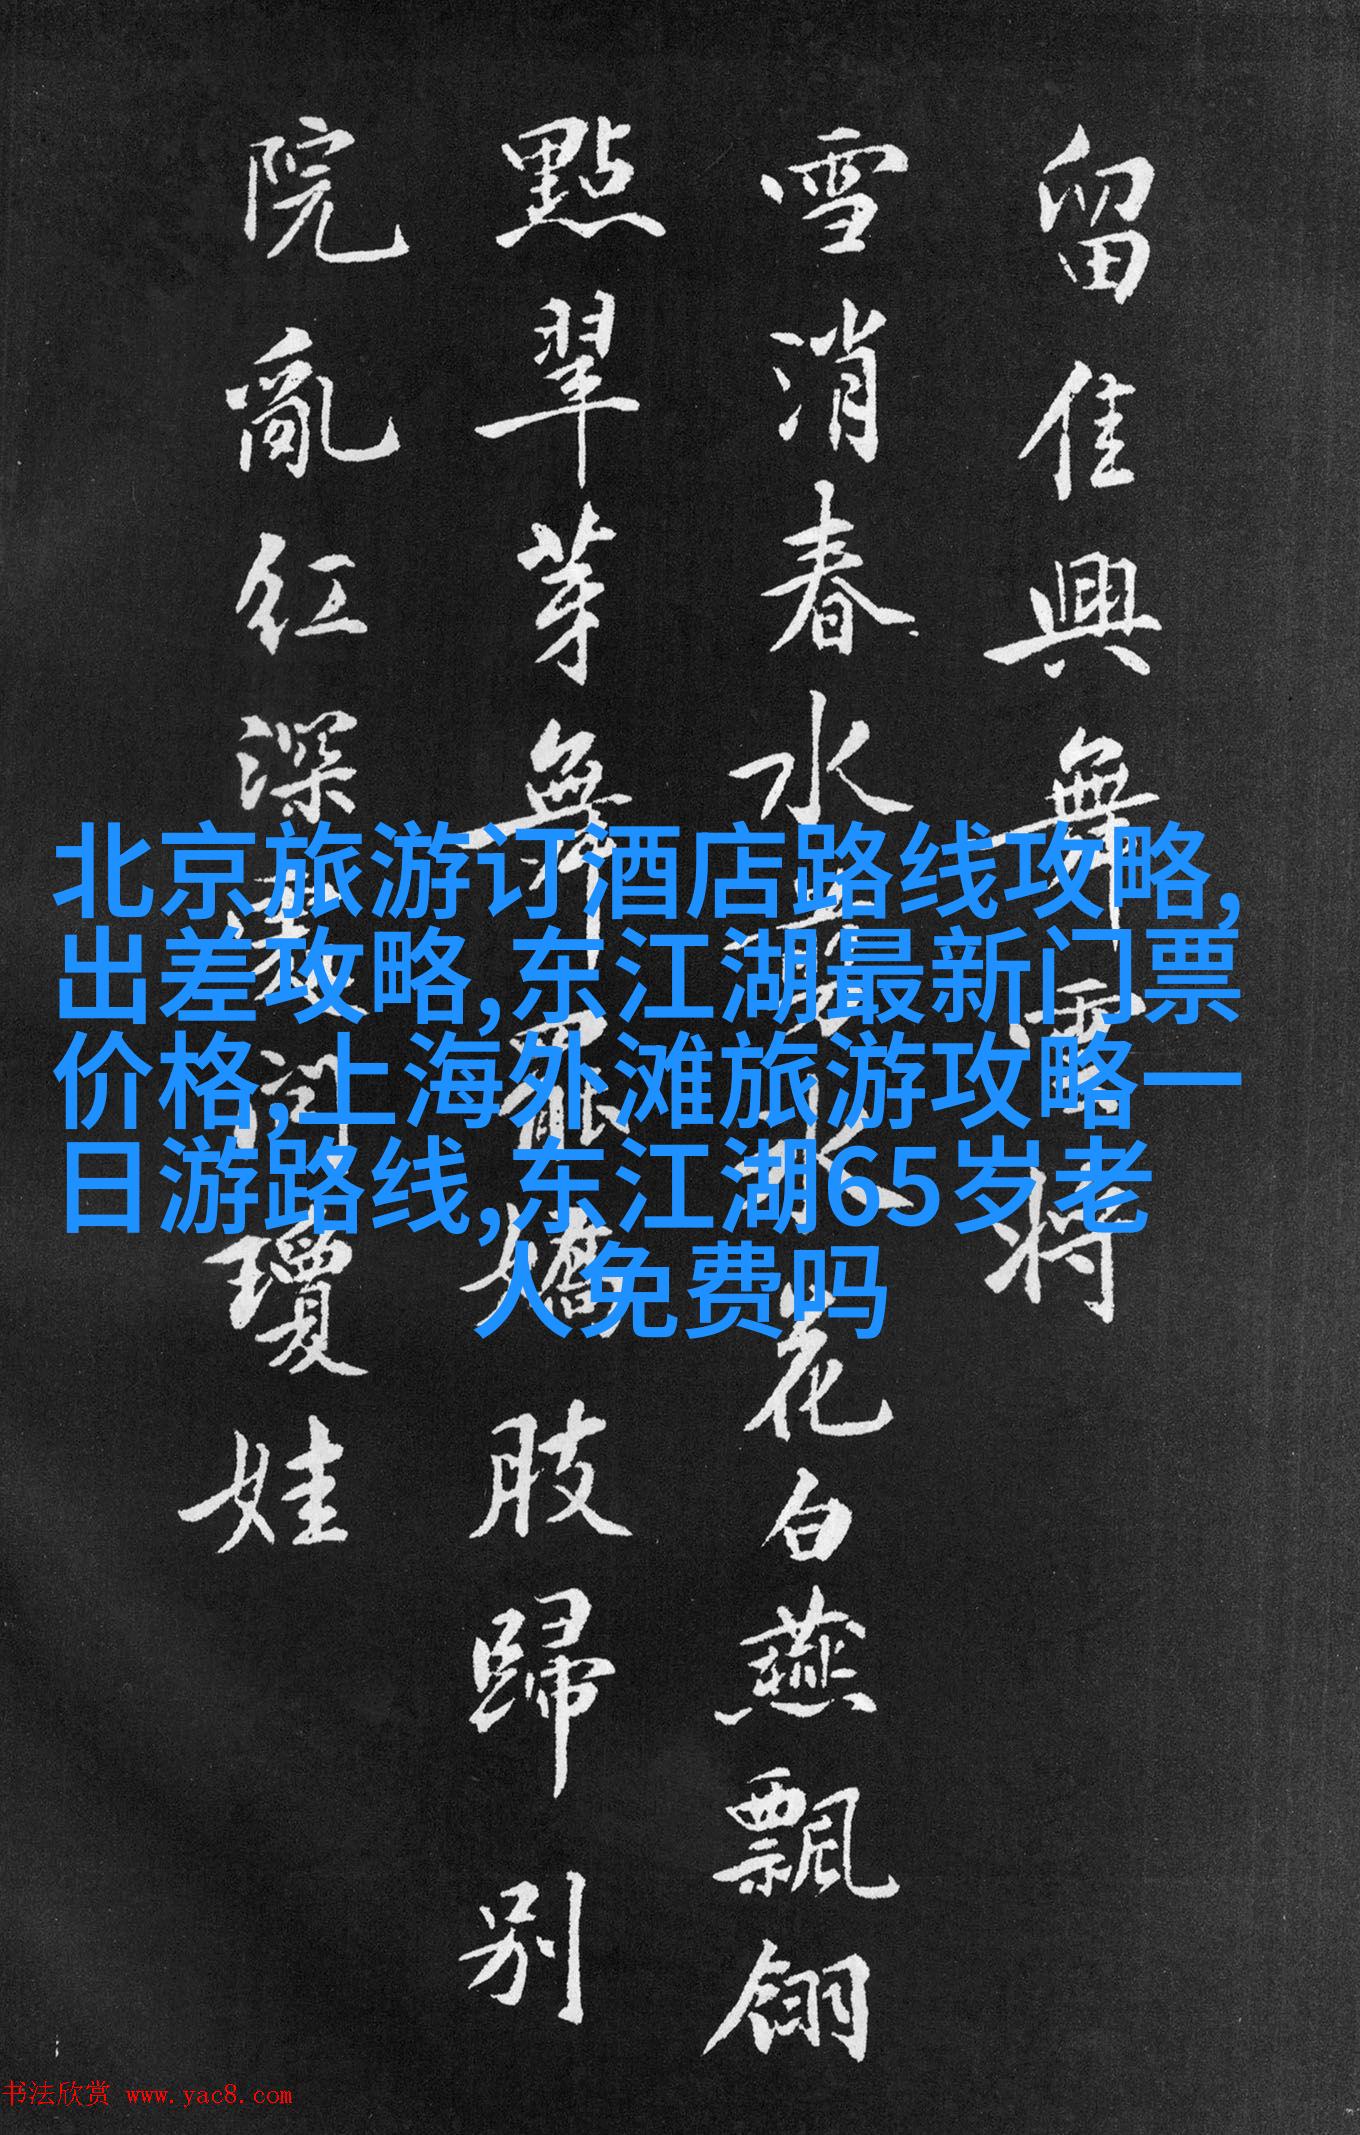 留佳興舞雪將
雪消春水最水花白燕飄翎
點翠芽舞罷嬌肢歸別
院亂紅深裏問瓊娃
北京旅游订酒店路线攻略,
出差攻略,东江湖最新门票
价格,上海外滩旅游攻略一
日游路线,东江湖65岁老
人免费吗
书法欣赏 www.yac8.com